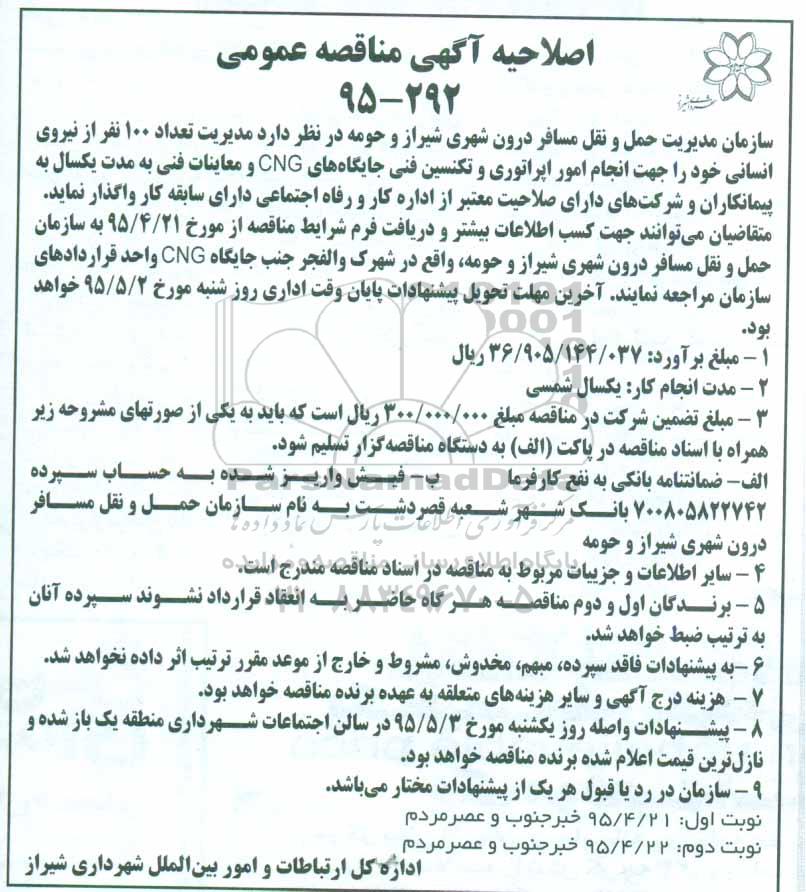 اصلاحیه آگهی مناقصه عمومی
۹۵-۲۹۲
سازمان مدیریت حمل و نقل مسافر درون شهری شیراز و حومه در نظر دارد مدیریت تعداد ۱۰۰ نفر از نیروی
انسانی خود را جهت انجام امور اپراتوری و تکنسین فنی جایگاه‌های CNG و معاینات فنی به مدت یکسال به
پیمانکاران و شرکت‌های دارای صلاحیت معتبر از اداره کار و رفاه اجتماعی دارای سابقه کار واگذار نماید.
متقاضیان می‌توانند جهت کسب اطلاعات بیشتر و دریافت فرم شرایط مناقصه از مورخ ۹۵/۴/۲۱ به سازمان
حمل و نقل مسافر درون شهری شیراز و حومه، واقع در شهرک والفجر جنب جایگاه CNG واحد قراردادهای
سازمان مراجعه نمایند. آخرین مهلت تحویل پیشنهادات پایان وقت اداری روز شنبه مورخ ۹۵/۵/۲ خواهد
بود.
۱ - مبلغ برآورد: ۳۶/۹۰۵/۱۴۴/۰۳۷ ریال
۲ - مدت انجام کار: یکسال شمسی
۳ - مبلغ تضمین شرکت در مناقصه مبلغ ۳۰۰/۰۰۰/۰۰۰ ریال است که باید به یکی از صورتهای مشروحه زیر
همراه با اسناد مناقصه در پاکت (الف) به دستگاه مناقصه‌گزار تسلیم شود.
الف- ضمانتنامه بانکی به نفع کارفرما ب- فیش واریز شده به حساب سپرده
۷۰۰۸۰۵۸۲۲۷۴۲ بانک شهر شعبه قصردشت به نام سازمان حمل و نقل مسافر
درون شهری شیراز و حومه
۴ - سایر اطلاعات و جزییات مربوط به مناقصه در اسناد مناقصه مندرج است.
۵ - برندگان اول و دوم مناقصه هر گاه حاضر به انعقاد قرارداد نشوند سپرده آنان
به ترتیب ضبط خواهد شد.
۶ -به پیشنهادات فاقد سپرده، مبهم، مخدوش، مشروط و خارج از موعد مقرر ترتیب اثر داده نخواهد شد.
۷ - هزینه درج آگهی و سایر هزینه‌های متعلقه به عهده برنده مناقصه خواهد بود.
۸ - پیشنهادات واصله روز یکشنبه مورخ ۹۵/۵/۳ در سالن اجتماعات شهرداری منطقه یک باز شده و
نازل‌ترین قیمت اعلام شده برنده مناقصه خواهد بود.
۹ - سازمان در رد یا قبول هر یک از پیشنهادات مختار می‌باشد.
نوبت اول: ۹۵/۴/۲۱ خبرجنوب و عصرمردم
نوبت دوم: ۹۵/۴/۲۲ خبرجنوب و عصرمردم
اداره کل ارتباطات و امور بین‌الملل شهرداری شیراز
ParsNamadData
مرکز فرآوری اطلاعات پارس نماد داده‌ها
پایگاه اطلاع رسانی مناقصه و مزایده